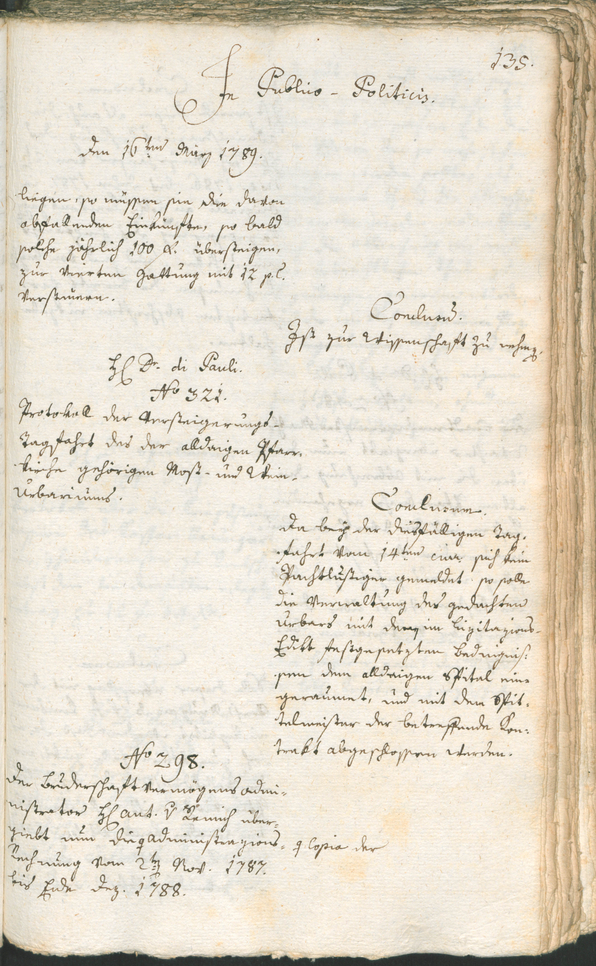 135.
In Publico-Politicis.
den 16ten März 1789.
liegen, so müssen sie die davon
abfallenden Einkünfte, so bald
solche jährlich 100 f. übersteigen,
zur vierten Gattung mit 12 p.C.
versteuern.
Conclusum.
Ist zur Wissenschaft zu nehmen.
H. Dr. di Pauli.
No 321.
Protokoll der Versteigerungs-
Tagfahrt des der alldaigen Pfarr-
kirche gehörigen Most- und Wein-
Urbariums.
Conclusum.
Da bey der diesfälligen Tag-
fahrt vom 14ten sich kein
Pachtlustiger gemeldet so solle
die Verwaltung des gedachten
Urbars mit im Lizitazions-
Edikt festgesetzten Bedingnis-
sen dem alldaigen Spital ein-
geraumet, und mit dem Spit-
telmeister der betreffende Kon-
trakt abgeschlossen werden.
No 298.
Der Bruderschaftvermögensadmi-
nistrator H. Ant. v Remich über-
giebt nun Administrazions-
Copia der
Rechnung vom Nov. 1787.
bis Ende Dez. 1788.